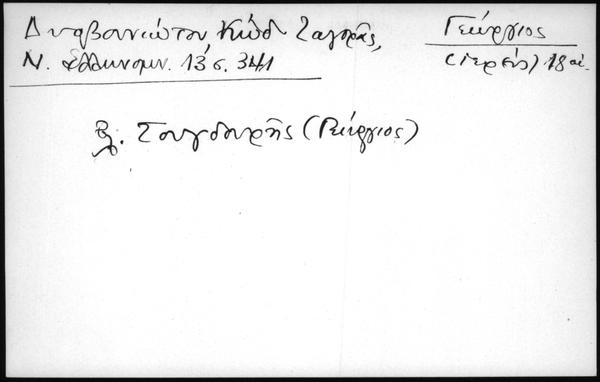 Δυοβουνιώτου Κώδ. Ζαγορᾶς,
Ν. Ἑλληνομν. 13 σ. 341
Γεώργιος
(ἱερεύς) 18 αἰ.
βλ. Σουγδουρῆς (Γεώργιος)